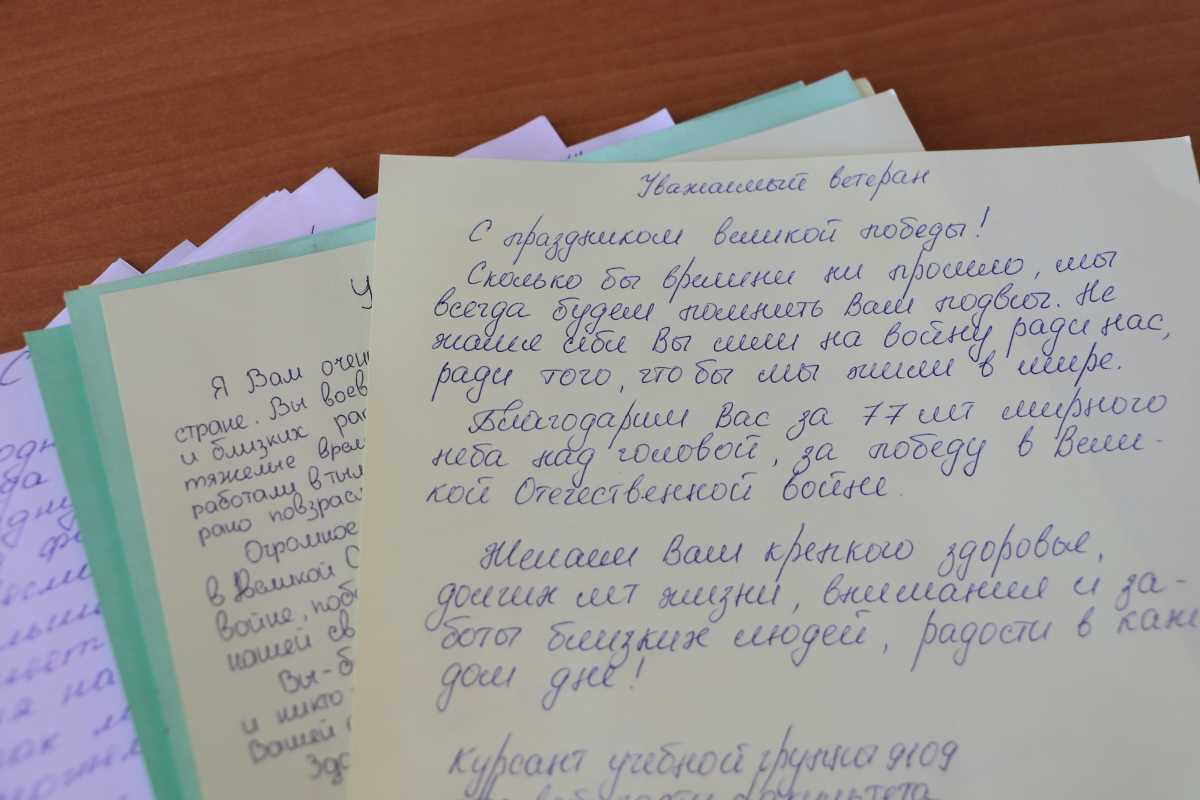 Уважаемый ветеран
С праздником великой победы!
Сколько бы времени ни прошло, мы
всегда будем помнить Ваш подвиг. Не
жалея себя Вы шли на войну ради нас,
ради того, что бы мы жили в мире.
Благодарим Вас за 77 лет мирного
неба над головой, за победу в Вели-
кой Отечественной войне.
Желаем Вам крепкого здоровья,
долгих лет жизни, внимания и за-
боты близких людей, радости в каж
дом дне!
Курсант учебной группы 9109
факультета
У
Я Вам очен
стране. Вы воев
и близких ра
тяжелые врем
работали в тыл
рано повзрасл
Огромное
в Великой О
Войне, поб
нашей св
Вы-б
и никто
Вашей
Здо